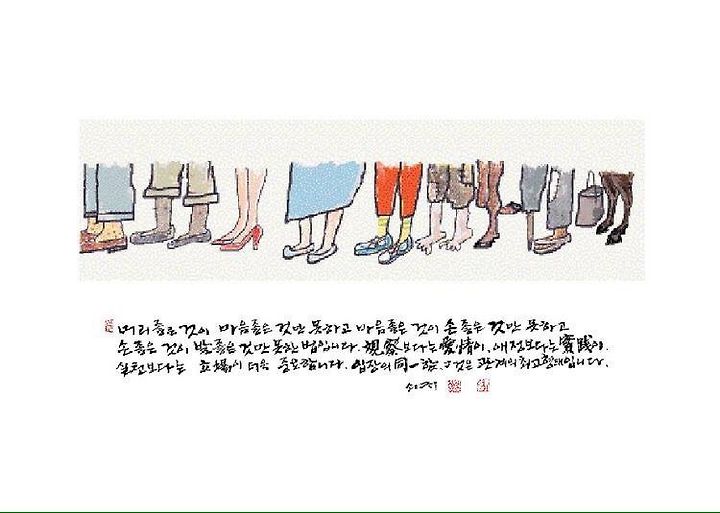 머리 좋은 것이 마음 좋은 것만 못하고 마음 좋은 것이 손 좋은 것만 못하고
손 좋은 것이 발 좋은 것만 못한 법입니다. 觀察보다는 愛情이, 애정보다는 實踐이,
실천보다는 立場이 더욱 중요합니다. 입장의 同一함. 그것은 관계의 최고형태입니다.